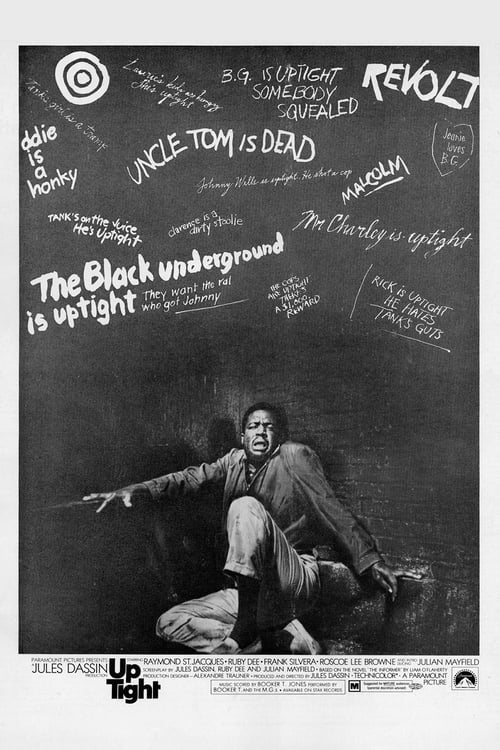 Laurie's kids are hungry
She's uptight
B.G. IS UPTIGHT
SOMEBODY
SQUEALED
REVOLT
Tank's girl is a tramp
ddie
is
a
honky
UNCLE TOM IS DEAD
Jeanie
loves
B.G.
Johnny Wells is uptight. He shot a cop
MALCOLM
TANK'S on the JUICE
He's Uptight
clarence is a
dirty stoolie
Mr Charley is uptight
The Black underground
is uptight
They want the rat
who got Johnny
THE COPS
ARE UPTIGHT
THERE'S
A $1,000
REWARD
RICK is UPTIGHT
HE HATES
TANK'S GUTS
PARAMOUNT PICTURES PRESENTS
A JULES DASSIN
PRODUCTION
Up
Tight
STARRING RAYMOND ST. JACQUES • RUBY DEE • FRANK SILVERA • ROSCOE LEE BROWNE AND INTRODUCING JULIAN MAYFIELD
SCREENPLAY BY JULES DASSIN, RUBY DEE AND JULIAN MAYFIELD • BASED ON THE NOVEL "THE INFORMER" BY LIAM O'FLAHERTY
PRODUCTION DESIGNER – ALEXANDRE TRAUNER • PRODUCED AND DIRECTED BY JULES DASSIN • TECHNICOLOR® • A PARAMOUNT
PICTURE
MUSIC SCORED BY BOOKER T. JONES PERFORMED BY
BOOKER T. AND THE M.G.s • AVAILABLE ON STAX RECORDS
M
Suggested for MATURE audiences
(parental discretion advised)
Paramount